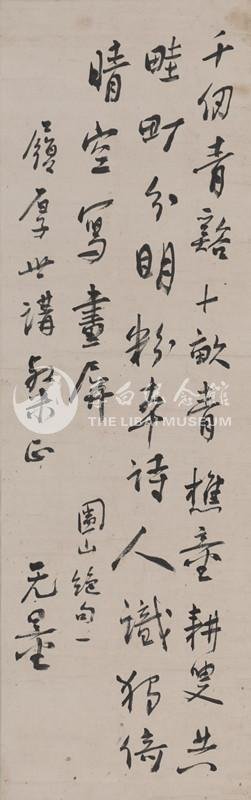 千仞青谿十畝青樵童耕叟共
畦町分明粉本詩人識獨倚
晴空寫畫屏
山絕句一
嶺厚世講正
无量
THE LIBAI MUSEUM